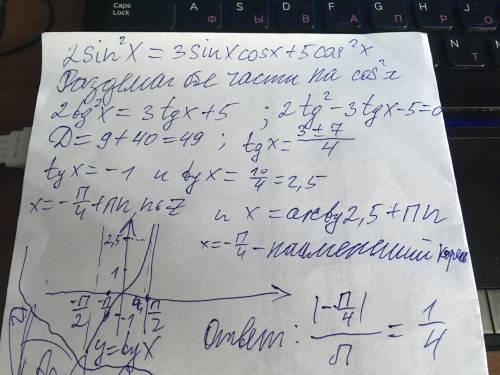 Caps Lock
Ф
А
П
Р
О
Т
2sin²x = 3sinxcosx + 5cos²x
Разделим обе части на cos²x
2tg²x = 3tgx + 5 ; 2tg² - 3tgx - 5 = 0
D = 9 + 40 = 49 ; tgx = (3 ± 7)/4
tgx = -1 и tgx = 10/4 = 2,5
x = -π/4 + πn n∈Z и x = arctg 2,5 + πn
x = -π/4 - наименьший корень
2,5
1
-π/2 -π/4 π/4 π/2
-1
y = tgx
Ответ: |-π/4|/π = 1/4